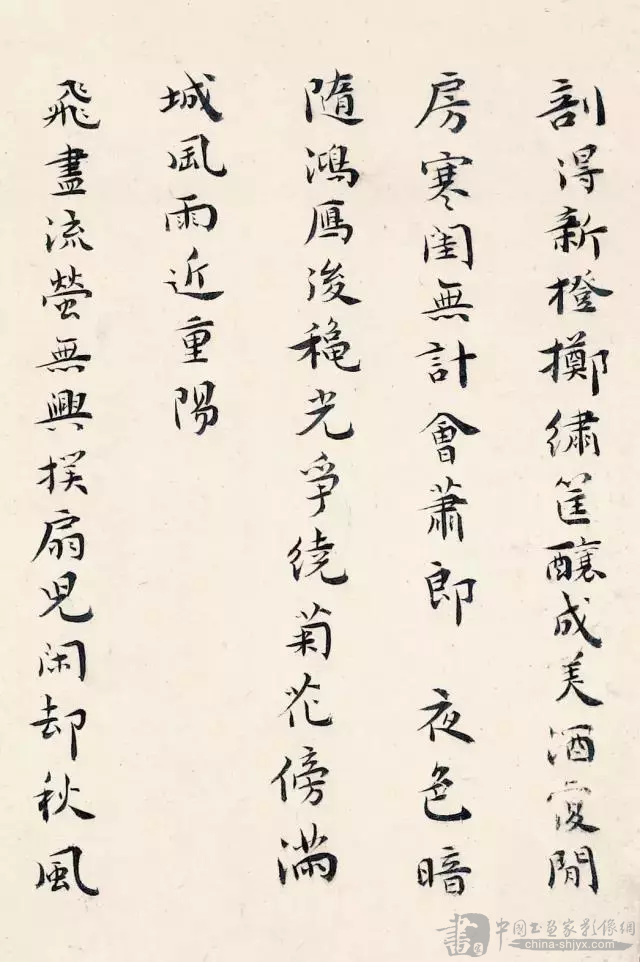 剖得新橙擲繡筐釀成美酒覆閒
房寒閨無計會蕭郎 夜色暗
隨鴻鴈後穐光爭繞菊花傍滿
城風雨近重陽
飛盡流螢無興撲扇兒閑却秋風
書 中國书画家影像網
china-shjyx.com